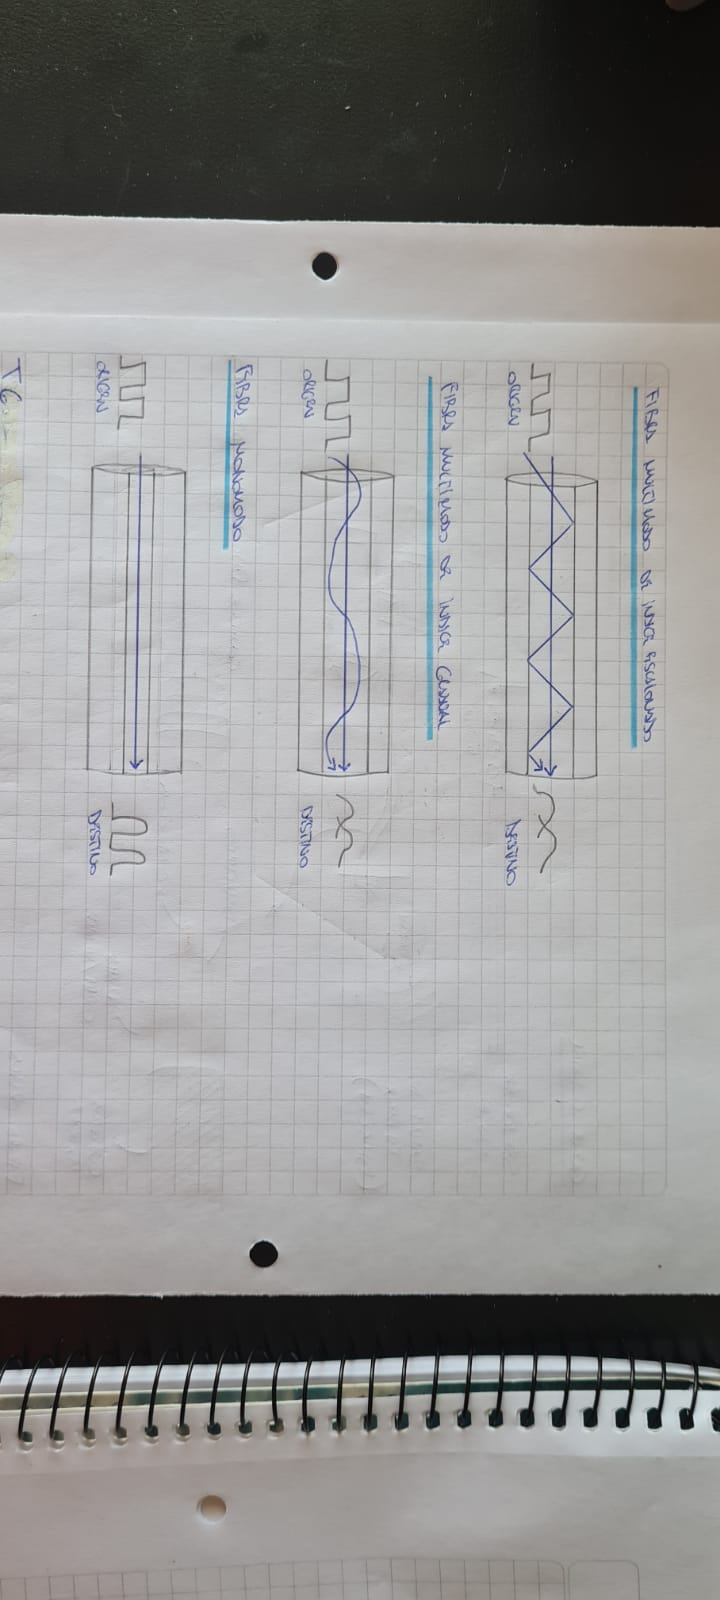 FIBRA MULTIMODO DE INDICE ESCALONADO
ORIGEN
DESTINO
FIBRA MULTIMODO DE INDICE GRADUAL
ORIGEN
DESTINO
FIBRA MONOMODO
ORIGEN
DESTINO